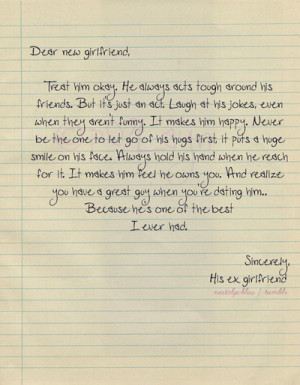 Dear new girlfriend,
Treat him okay. He always acts tough around his
friends. But it's just an act. Laugh at his jokes, even
when they aren't funny. It makes him happy. Never
be the one to let go of his hugs first, it puts a huge
smile on his face. Always hold his hand when he reach
for it. It makes him feel he owns you. And realize
you have a great guy when you're dating him..
Because he's one of the best
I ever had.
Sincerely,
His ex girlfriend